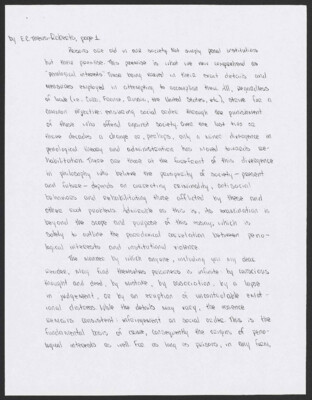 by E.E.
page 1
Prisons are old in our society. Not simply penal institutions
but their premise. This premise is what we now comprehend as
"penological interests." These being varied in their exact details and
measures employed in attempting to accomplish them all, regardless
of locale (i.e., Cuba, France, Russia, the United States, etc.), strive for a
singular objective: ensuring social order through the punishment
of those who offend against society. Over the last two or
three decades a change or, perhaps, only a minor divergence in
penological theory and administration has moved towards re-
habilitation. There are those at the forefront of this divergence
in philosophy who believe the prosperity of society - present
and future - depends on uncovering criminality, anti-social
behaviors and rehabilitating those afflicted by these and
others. But problems debatable as this is, its examination is
beyond the scope and purpose of this essay, which is
solely to outline the paradoxical association between peno-
logical interests and institutional violence.
The manner by which anyone, including you my dear
reader, may find themselves prisoners is infinite: by conscious
thought and deed, by mistake, by association, by a lapse
in judgement, or by an eruption of uncontrollable emot-
ional distress. While the details may vary, the essence
remains consistent: infringement on social order. This is the
fundamental basis of crime, consequently the origins of peno-
logical interests as well. For as long as prisons, in any form,